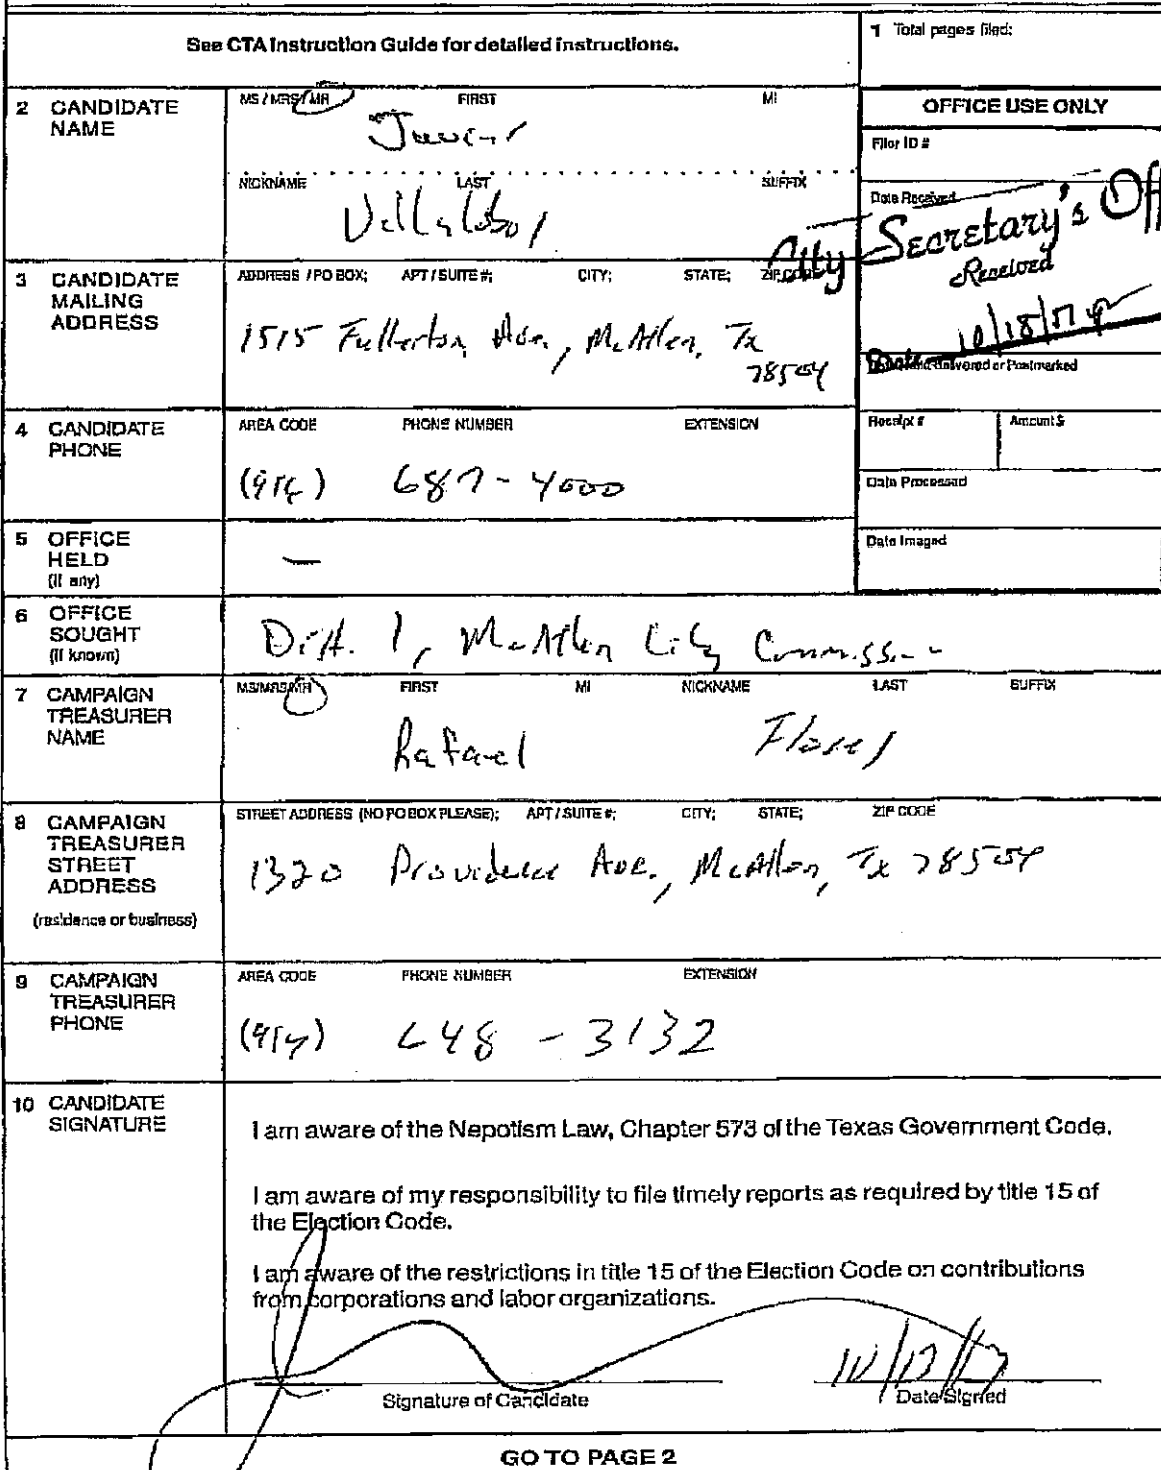 See CTA Instruction Guide for detailed instructions.
1 Total pages filed:
2 CANDIDATE NAME
MS / MRS / MR FIRST MI
Javier
NICKNAME LAST SUFFIX
Villalobos
OFFICE USE ONLY
Filer ID #
Date Received
City Secretary's Off
Received
Date 10/18/17
Date Hand-delivered or Postmarked
Receipt # Amount $
Date Processed
Date Imaged
3 CANDIDATE MAILING ADDRESS
ADDRESS / PO BOX; APT / SUITE #; CITY; STATE; ZIP CODE
1515 Fullerton Ave., McAllen, Tx
78504
4 CANDIDATE PHONE
AREA CODE PHONE NUMBER EXTENSION
(956) 687-4000
5 OFFICE HELD (if any)
—
6 OFFICE SOUGHT (if known)
Dist. 1, McAllen City Commission
7 CAMPAIGN TREASURER NAME
MS/MRS/MR FIRST MI NICKNAME LAST SUFFIX
Rafael Flores
8 CAMPAIGN TREASURER STREET ADDRESS
(residence or business)
STREET ADDRESS (NO PO BOX PLEASE); APT / SUITE #; CITY; STATE; ZIP CODE
1320 Providence Ave., McAllen, Tx 78504
9 CAMPAIGN TREASURER PHONE
AREA CODE PHONE NUMBER EXTENSION
(956) 648-3132
10 CANDIDATE SIGNATURE
I am aware of the Nepotism Law, Chapter 573 of the Texas Government Code.
I am aware of my responsibility to file timely reports as required by title 15 of
the Election Code.
I am aware of the restrictions in title 15 of the Election Code on contributions
from corporations and labor organizations.
10/17/17
Signature of Candidate Date Signed
GO TO PAGE 2